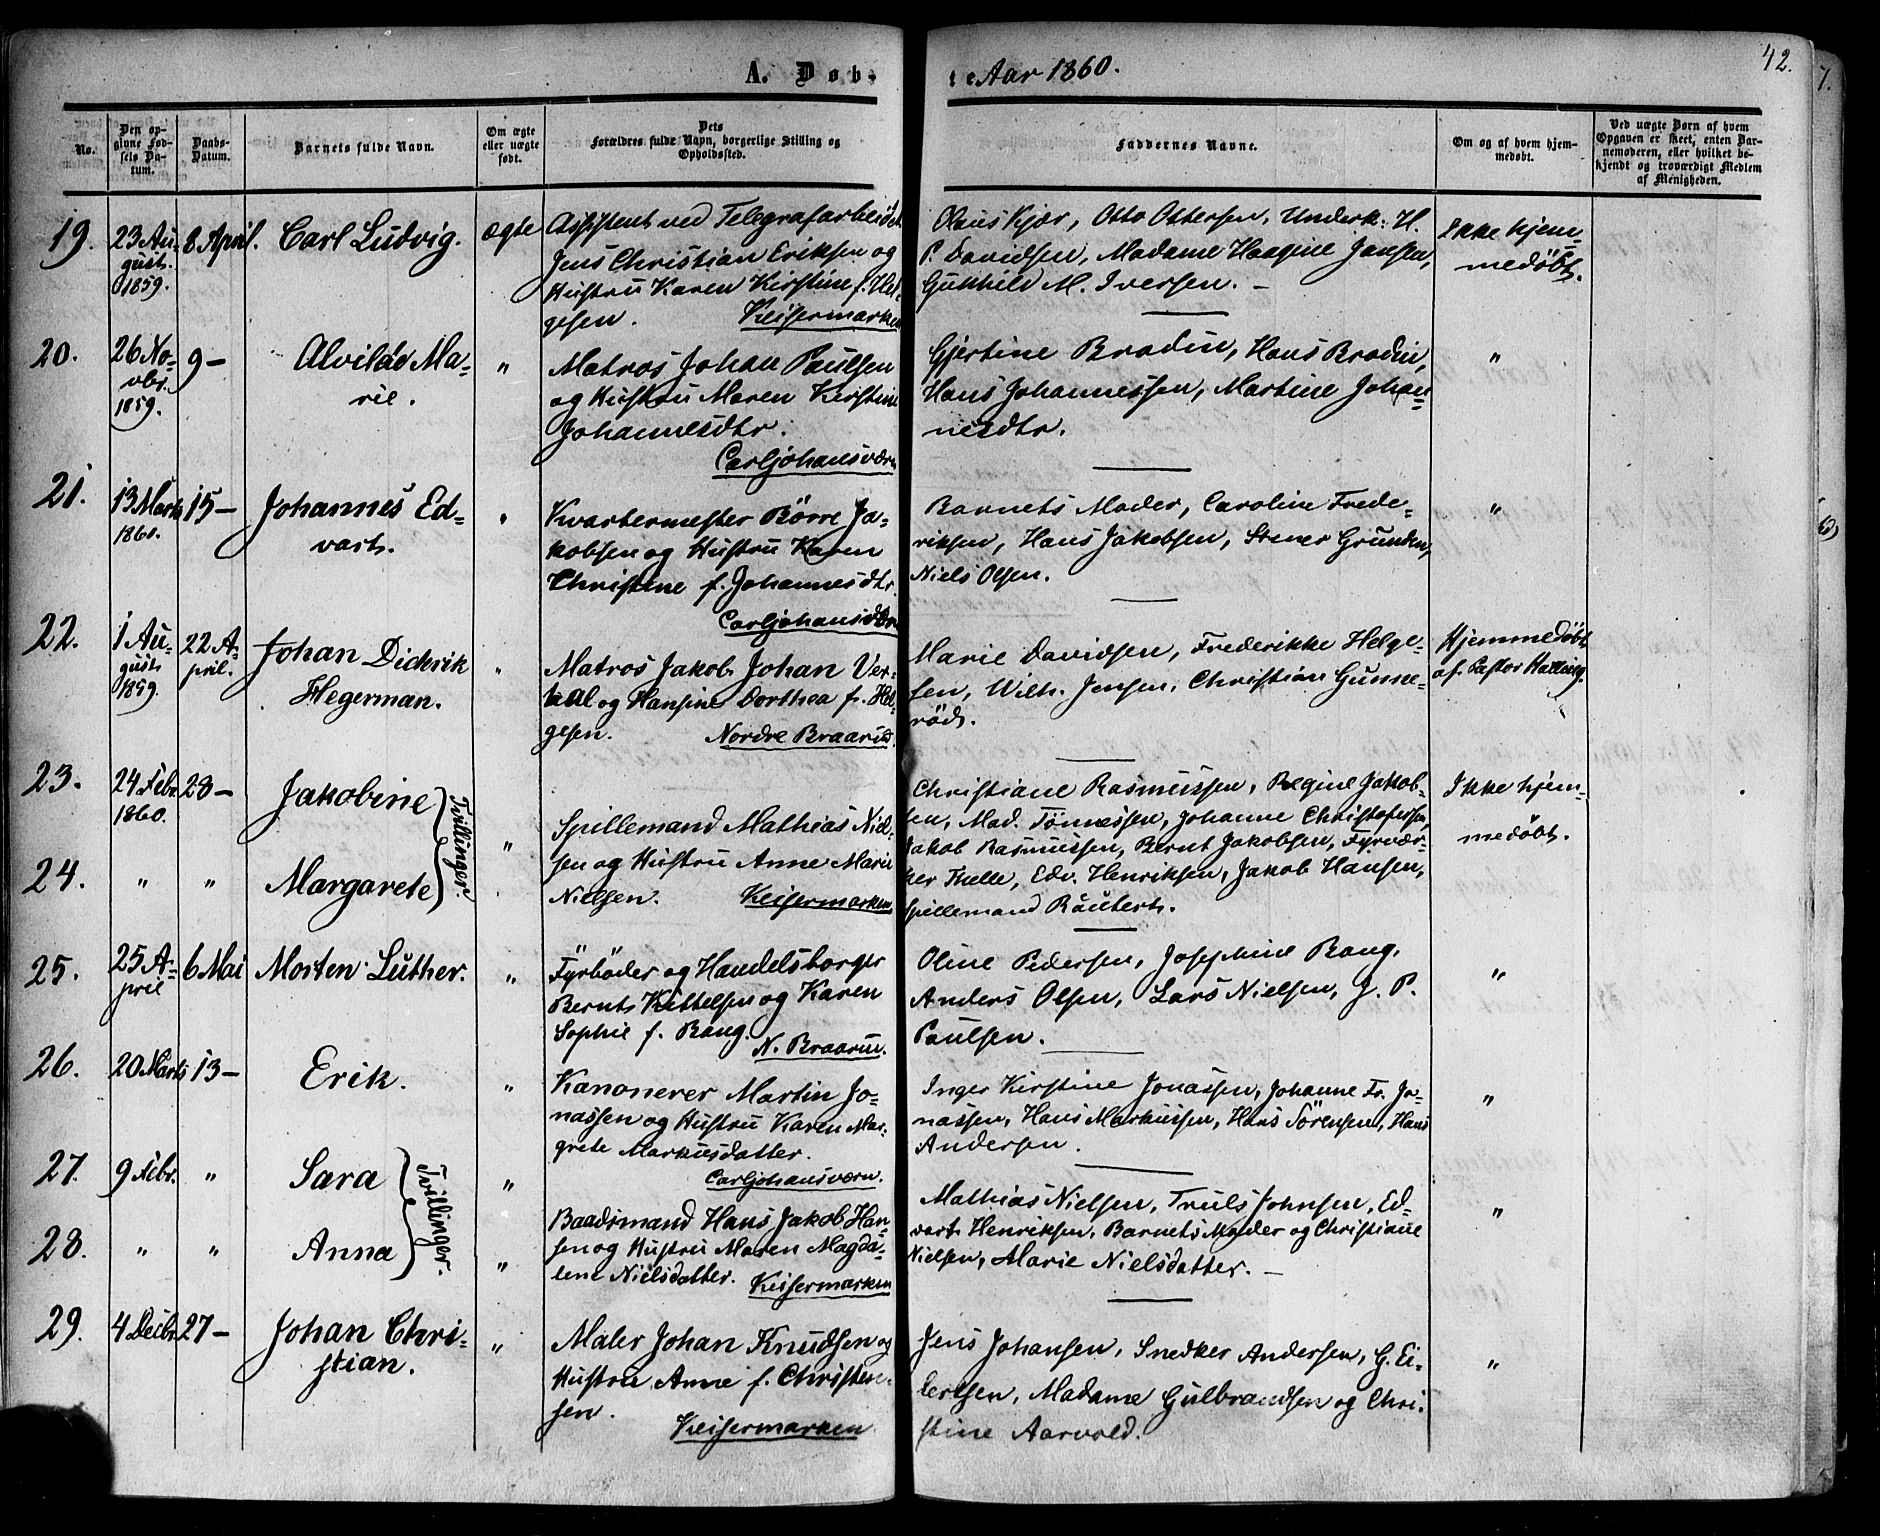 A. Døb-
te Aar 1860.
42.
No.
Den op-
givne Fød-
sels Da-
tum.
Daabs-
Datum.
Barnets fulde Navn.
Om ægte
eller uægte
født.
Dets
Forældres fulde Navn, borgerlige Stilling og
Opholdssted.
Faddernes Navne.
Om og af hvem hjem-
medøbt.
Ved uægte Børn af hvem
Opgaven er skeet, enten Bar-
nemoderen, eller hvilket be-
kjendt og troværdigt Medlem
af Menigheden.
19.
23 Au-
gust.
1859.
8 April.
Carl Ludvig.
ægte
Assistent ved Telegrafarbeidet
Jens Christian Eriksen og
Hustru Karen Kirstine f. Hel-
gesen.
Keisermarken
Claus Kjær, Otto Ottersen, Underk: H.
P. Davidsen, Madame Haagine Jansen,
Gunhild M. Iversen. –
Ikke hjem-
medøbt.
20.
26 No-
vbr.
1859.
9 –
Alvilde Ma-
rie.
"
Matros Johan Paulsen
og Hustru Maren Kirstine
Johannesdtr.
Carljohansværn
Gjertine Brodin, Hans Brodin,
Hans Johannessen, Martine Johan-
nesdtr.
"
21.
13 Marts
1860.
15 –
Johannes Ed-
vart.
"
Kvartermester Børre Ja-
kobsen og Hustru Karen
Christine f. Johannesdtr.
Carljohansværn
Barnets Moder, Caroline Frede-
riksen, Hans Jakobsen, Stener Grunden,
Niels Olsen.
"
22.
1 Au-
gust
1859.
22 A-
pril.
Johan Didrik
Hegerman.
"
Matros Jakob Johan Ver-
dal og Hansine Dorthea f. Hel-
gesen.
Nordre Braarud.
Marie Davidsen, Frederikke Helge-
sen, Wilh. Jensen, Christian Gunne-
röd.
Hjemmedøbt
af Pastor Halling.
23.
24 Febr.
1860.
28 –
Jakobine
Tvillinger.
"
Spillemand Mathias Niel-
sen og Hustru Anne Marie
Nielsen.
Keisermarken
Christiane Rasmussen, Regine Jakob-
sen, Mad. Tönnessen, Johanne Christofersen,
Jakob Rasmussen, Bernt Jakobsen, Fyrvær-
ker Thelle, Edv. Henriksen, Jakob Hansen,
Spillemand Räubert.
Ikke hjem-
medøbt.
24.
"
"
Margarete
25.
25 A-
pril
6 Mai
Morten Luther.
"
Fyrbøder og Handelsborger
Bernt Kittelsen og Karen
Sophie f. Bang.
N. Braarud.
Oline Pedersen, Josephine Bang,
Anders Olsen, Lars Nielsen, J. P.
Paulsen.
"
26.
20 Marts
13 –
Erik.
"
Kanonerer Martin Jo-
nassen og Hustru Karen Mar-
grete Markusdatter.
Carljohansværn.
Inger Kirstine Jonassen, Johanne Fr. Jo-
nassen, Hans Markussen, Hans Sörensen, Hans
Andersen.
"
27.
9 Febr.
"
Sara
Tvillinger.
"
Baadsmand Hans Jakob Han-
sen og Hustru Maren Magda-
lene Nielsdatter.
Keisermarken
Mathias Nielsen, Truls Johnsen, Ed-
vart Henriksen, Barnets Moder og Christiane
Nielsen, Marie Nielsdatter. –
"
28.
"
"
Anna
"
29.
4 Decbr.
27 –
Johan Chri-
stian.
"
Maler Johan Knudsen og
Hustru Anne f. Christen-
sen.
Keisermarken
Jens Johansen, Snedker Andersen, G. Ei-
lertsen, Madame Gulbrandsen og Chri-
stine Aarvold.
"